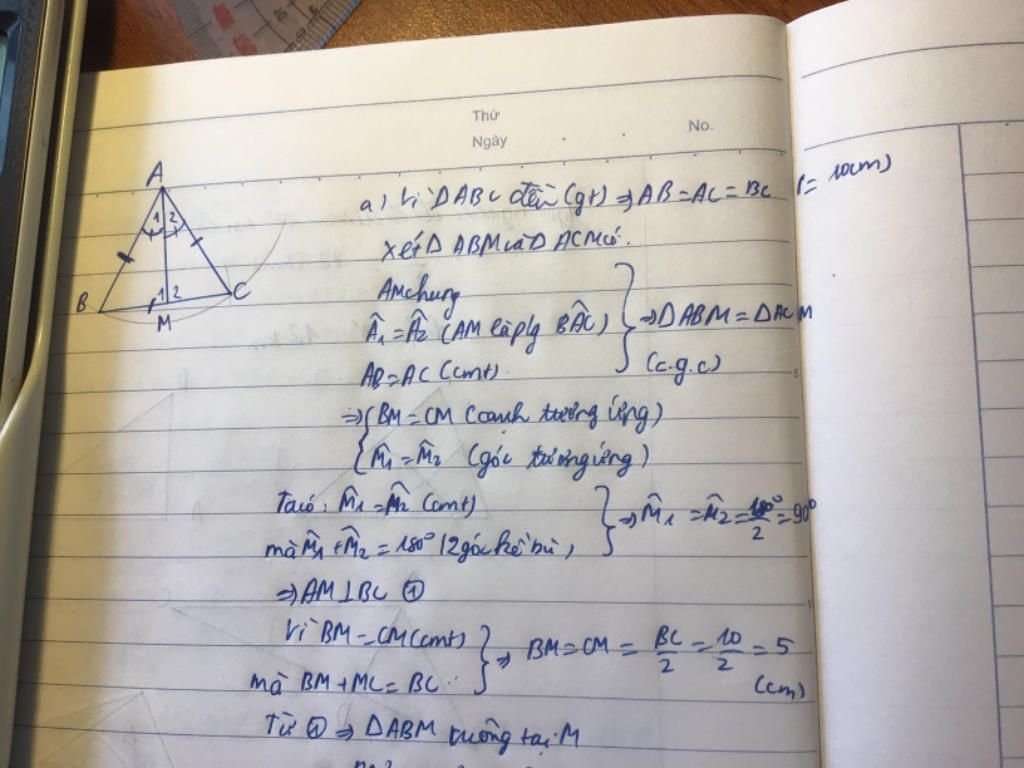 Thứ
Ngày
No.
A
1 2
B
1 2
C
M
a) Vì ΔABC đều (gt) ⇒ AB = AC = BC (= 10cm)
Xét Δ ABM và Δ ACM có.
AM chung
Â1 = Â2 (AM là p/g BÂC)
AB = AC (cmt)
⇒ ΔABM = ΔACM
(c.g.c)
⇒ { BM = CM (cạnh tương ứng)
M̂1 = M̂2 (góc tương ứng)
Ta có: M̂1 = M̂2 (cmt)
mà M̂1 + M̂2 = 180° (2 góc kề bù)
⇒ M̂1 = M̂2 = 180°/2 = 90°
⇒ AM ⊥ BC ①
Vì BM = CM (cmt)
mà BM + MC = BC
⇒ BM = CM = BC/2 = 10/2 = 5
(cm)
Từ ① ⇒ ΔABM vuông tại M